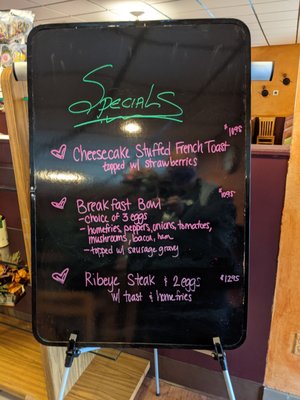 Specials
Cheesecake Stuffed French Toast
topped w/ strawberries
Breakfast Bowl
- choice of 3 eggs
- homefries, peppers, onions, tomatoes,
mushrooms, bacon, ham
- topped w/ sausage gravy
$10.95
Ribeye Steak & 2 eggs $12.95
w/ toast & homefries